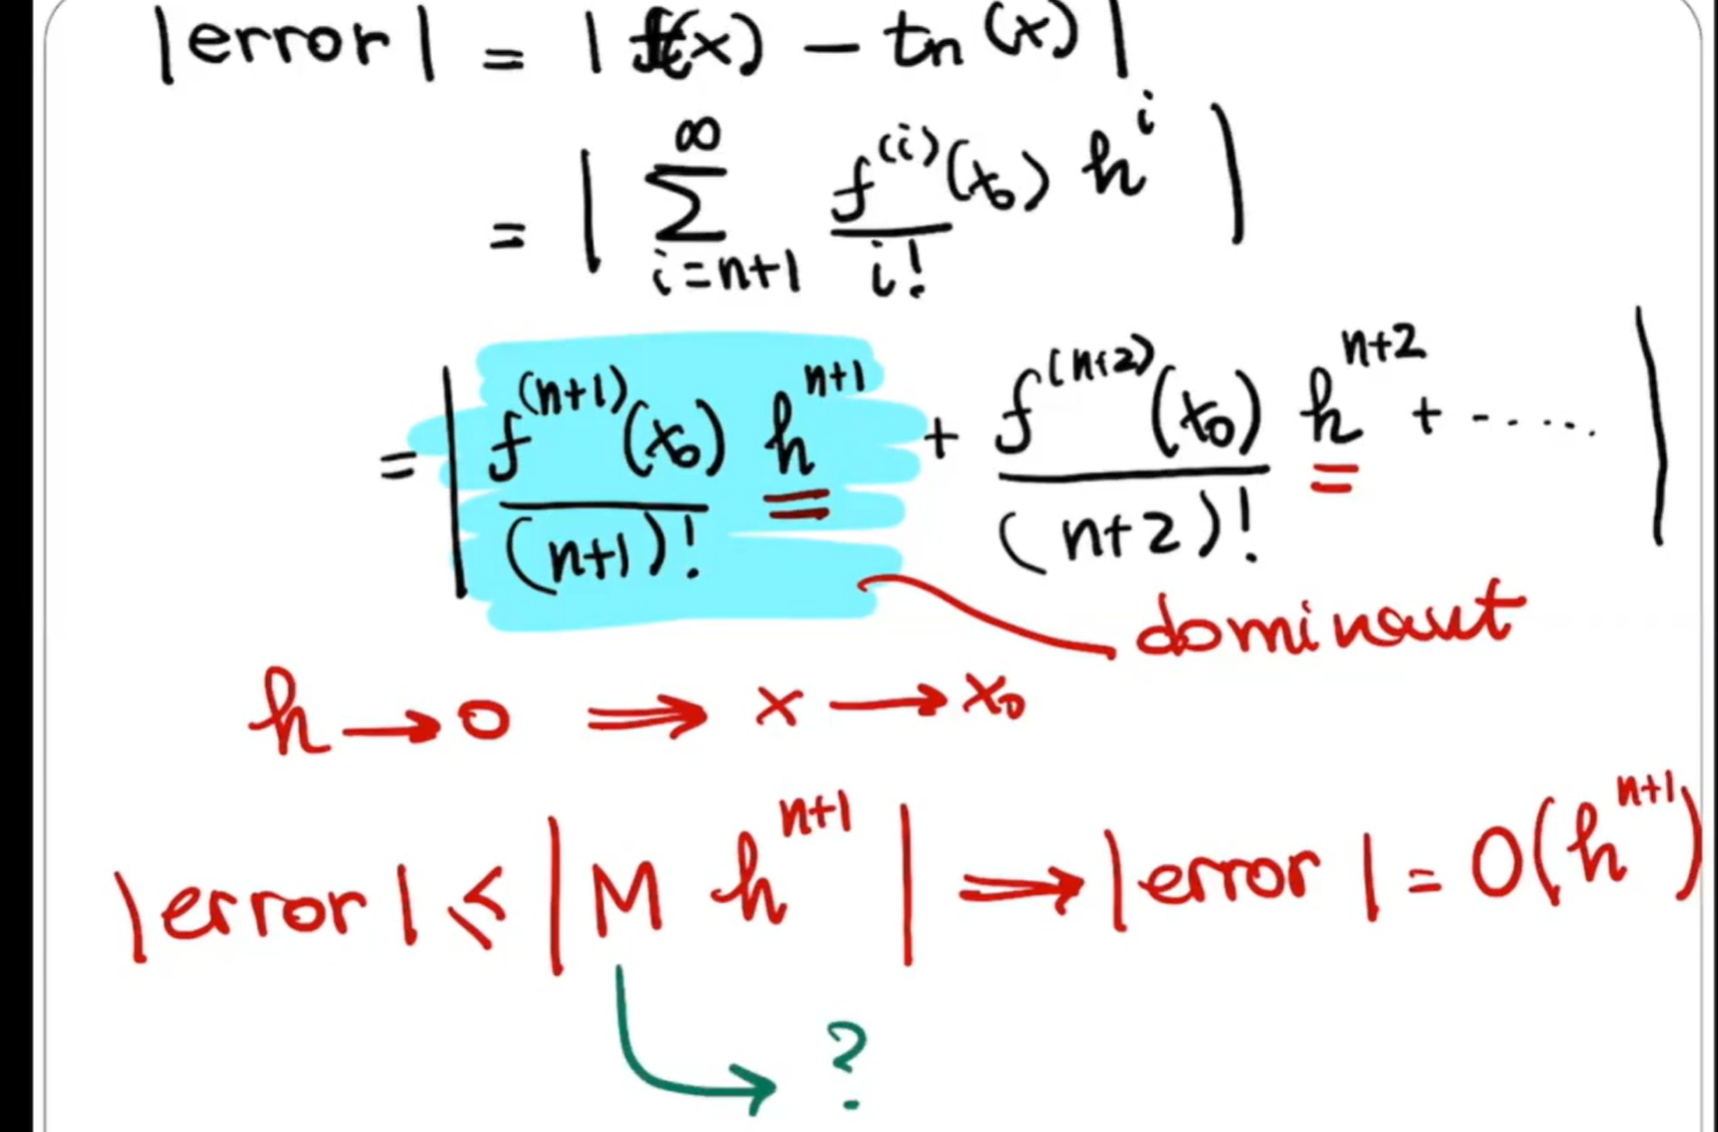 |error| = |f(x) - tn(x)|
= | ∞ ∑ i=n+1 f^(i)(x₀) / i! h^i |
= | f^(n+1)(x₀) / (n+1)! h^n+1 + f^(n+2)(x₀) / (n+2)! h^n+2 + ...... |
dominant
h → 0 ⟹ x → x₀
|error| ≤ | M h^n+1 | ⟹ |error| = O(h^n+1)
?